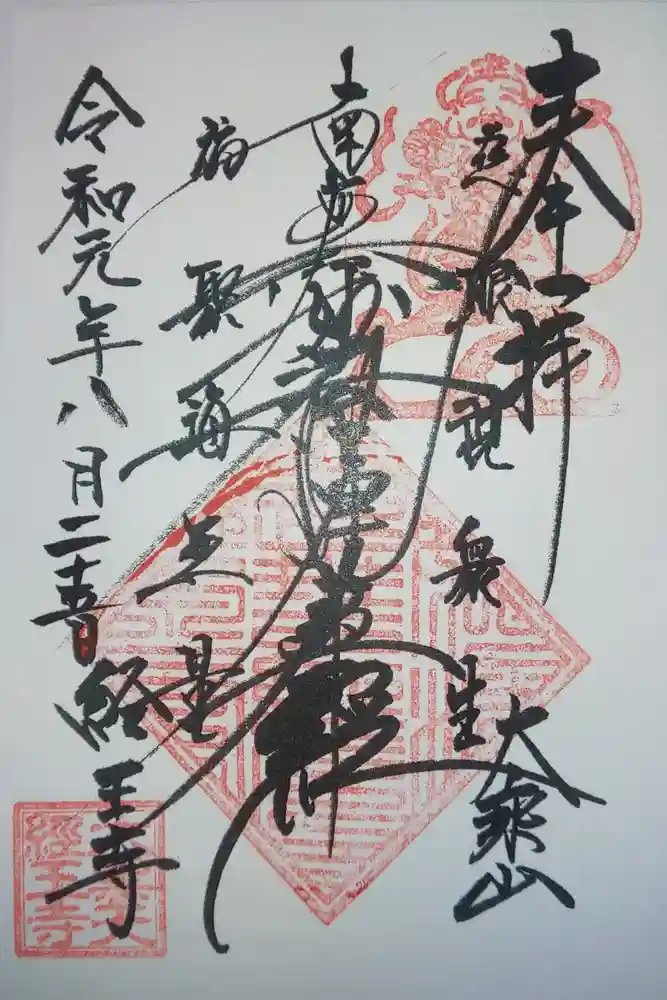 奉拝
大乗山
慈眼視衆生
南無妙法蓮華経
福聚海無量
令和元年八月二十
経王寺
經王寺